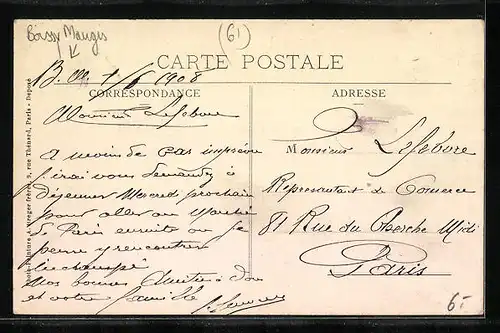 Boissy Mauges
(61)
CARTE POSTALE
1908
CORRESPONDANCE
Monsieur Lefebvre
A moins de cas imprévu
j'irai vous demander à
déjeuner Mercredi prochain
pour aller au Marché
de Paris ensuite ou je
pense y rencontrer
Nos bonnes Amitiés à
et votre famille
ADRESSE
Monsieur Lefebvre
Représentant de Comerce
81 Rue du Cherche Midi
Paris
6.-
Neurdein & Kreger frères, 9, rue Thénard, Paris - Déposé